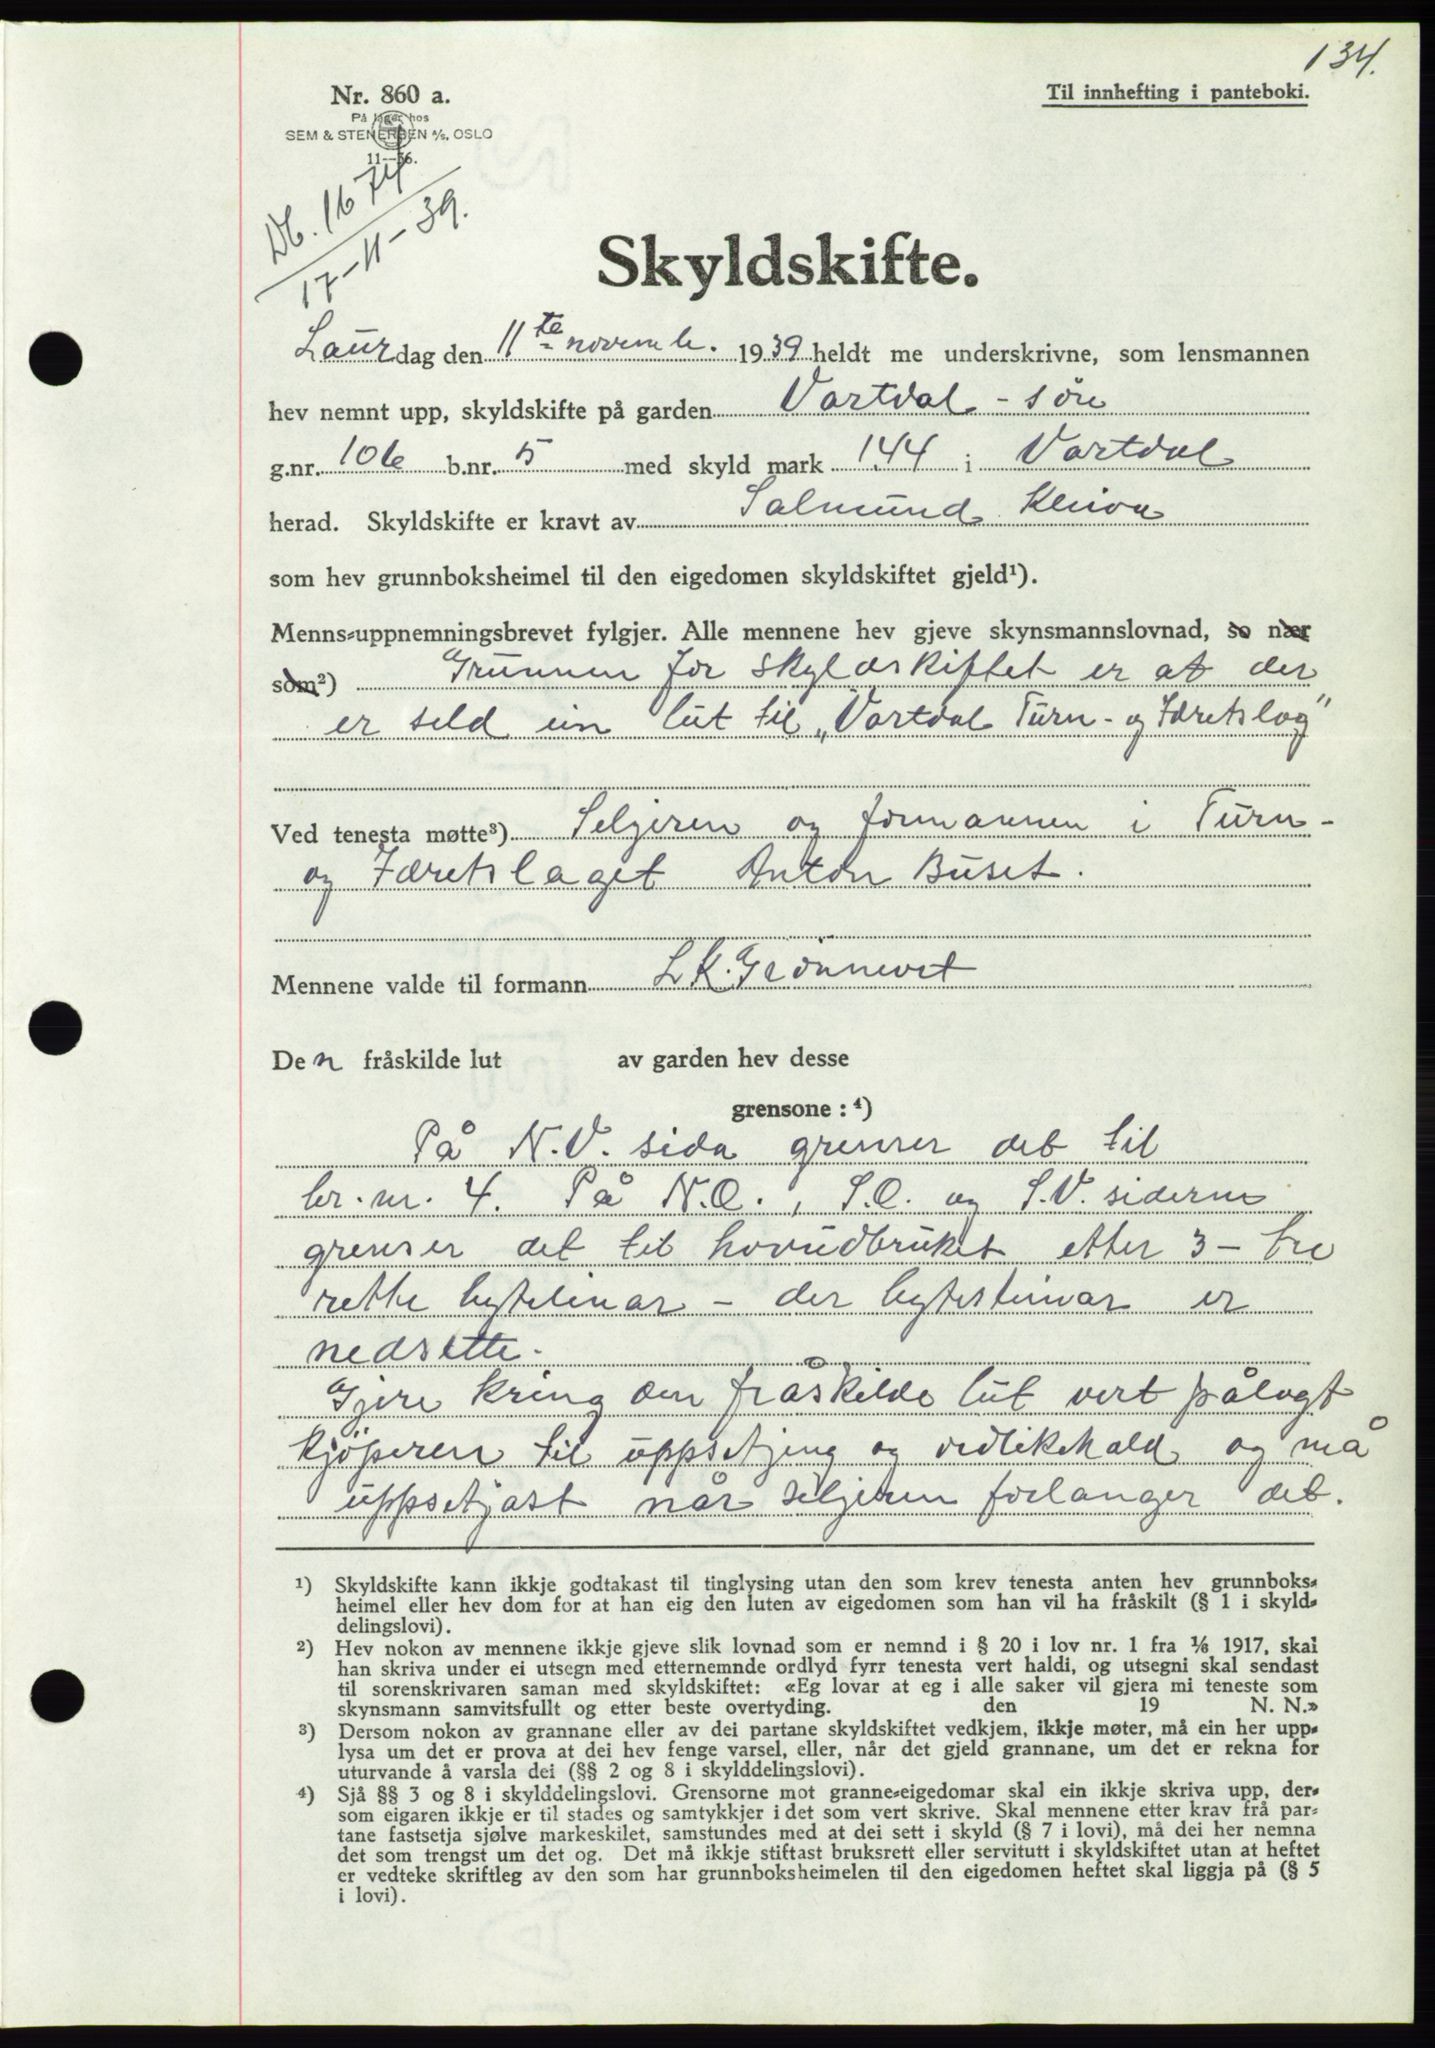 134.
Nr. 860 a.
Til innhefting i panteboki.
På lager hos
SEM & STENERSEN A/S, OSLO
11--36.
Db. 1674
17-11-39.
Skyldskifte.
Laurdag den 11te novemb. 1939 heldt me underskrivne, som lensmannen
hev nemnt upp, skyldskifte på garden Vartdal - søre
g.nr. 106 b.nr. 5 med skyld mark 1,44 i Vartdal
herad. Skyldskifte er kravt av Salmund
som hev grunnboksheimel til den eigedomen skyldskiftet gjeld¹).
Menns-uppnemningsbrevet fylgjer. Alle mennene hev gjeve skynsmannslovnad, so nær
som²) Grunnen for skyldskiftet er at der
er seld ein lut til „Vartdal Turn- og Idretslag"
Ved tenesta møtte³) Seljeren og formannen i Turn-
og Idretslaget Anton Buset.
Mennene valde til formann L.K. Grönnevet
Den fråskilde lut av garden hev desse
grensone: ⁴)
På N.V. sida grenser det til
br.nr. 4. På N.O., S.O. og S.V. siderne
grenser det til hovudbruket etter 3 - tre
rette bytelinar - der bytesteinar er
nedsette.
Gjere kring den fråskilde lut vert pålagt
kjöperen til uppsetjing og vedlikehald og må
uppsetjast når seljeren forlanger det.
1) Skyldskifte kann ikkje godtakast til tinglysing utan den som krev tenesta anten hev grunnboks-
heimel eller hev dom for at han eig den luten av eigedomen som han vil ha fråskilt (§ 1 i skyld-
delingslovi).
2) Hev nokon av mennene ikkje gjeve slik lovnad som er nemnd i § 20 i lov nr. 1 fra 1/6 1917, skal
han skriva under ei utsegn med etternemnde ordlyd fyrr tenesta vert haldi, og utsegni skal sendast
til sorenskrivaren saman med skyldskiftet: «Eg lovar at eg i alle saker vil gjera mi teneste som
skynsmann samvitsfullt og etter beste overtyding. den 19 N. N.»
3) Dersom nokon av grannane eller av dei partane skyldskiftet vedkjem, ikkje møter, må ein her upp-
lysa um det er prova at dei hev fenge varsel, eller, når det gjeld grannane, um det er rekna for
uturvande å varsla dei (§§ 2 og 8 i skylddelingslovi).
4) Sjå §§ 3 og 8 i skylddelingslovi. Grensorne mot granne-eigedomar skal ein ikkje skriva upp, der-
som eigaren ikkje er til stades og samtykkjer i det som vert skrive. Skal mennene etter krav frå par-
tane fastsetja sjølve markeskilet, samstundes med at dei sett i skyld (§ 7 i lovi), må dei her nemna
det som trengst um det og. Det må ikkje stiftast bruksrett eller servitutt i skyldskiftet utan at heftet
er vedteke skriftleg av den som har grunnboksheimelen til den eigedomen heftet skal liggja på (§ 5
i lovi).